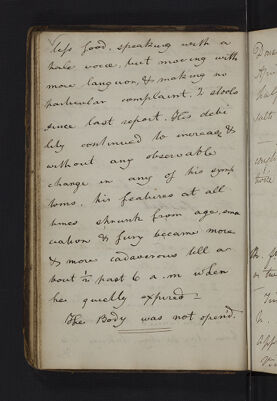 less food, speaking with a
hale voice, but moving with
more languor, & making no
particular complaint, 2 stools
since last report. His debi
lity continued to increase &
without any observable
change in any of his symp
toms, his features at all
times shrunk from age, ema
ciation & fury became more
& more cadaverous till a
bout ½ past 6 a.m when
he quietly expired –
The Body was not opend.